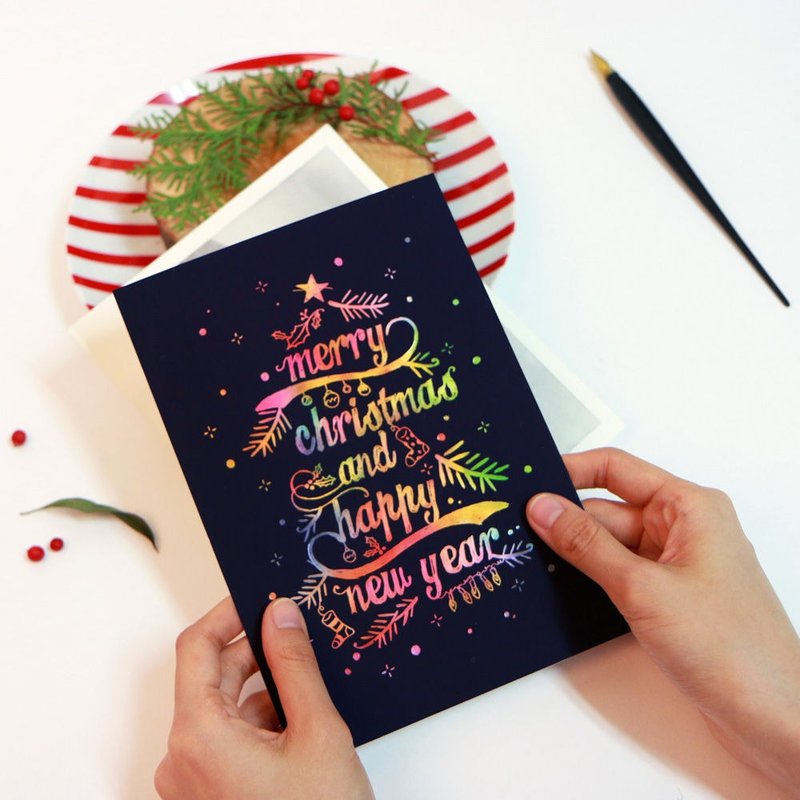 merry
christmas
and
happy
new year